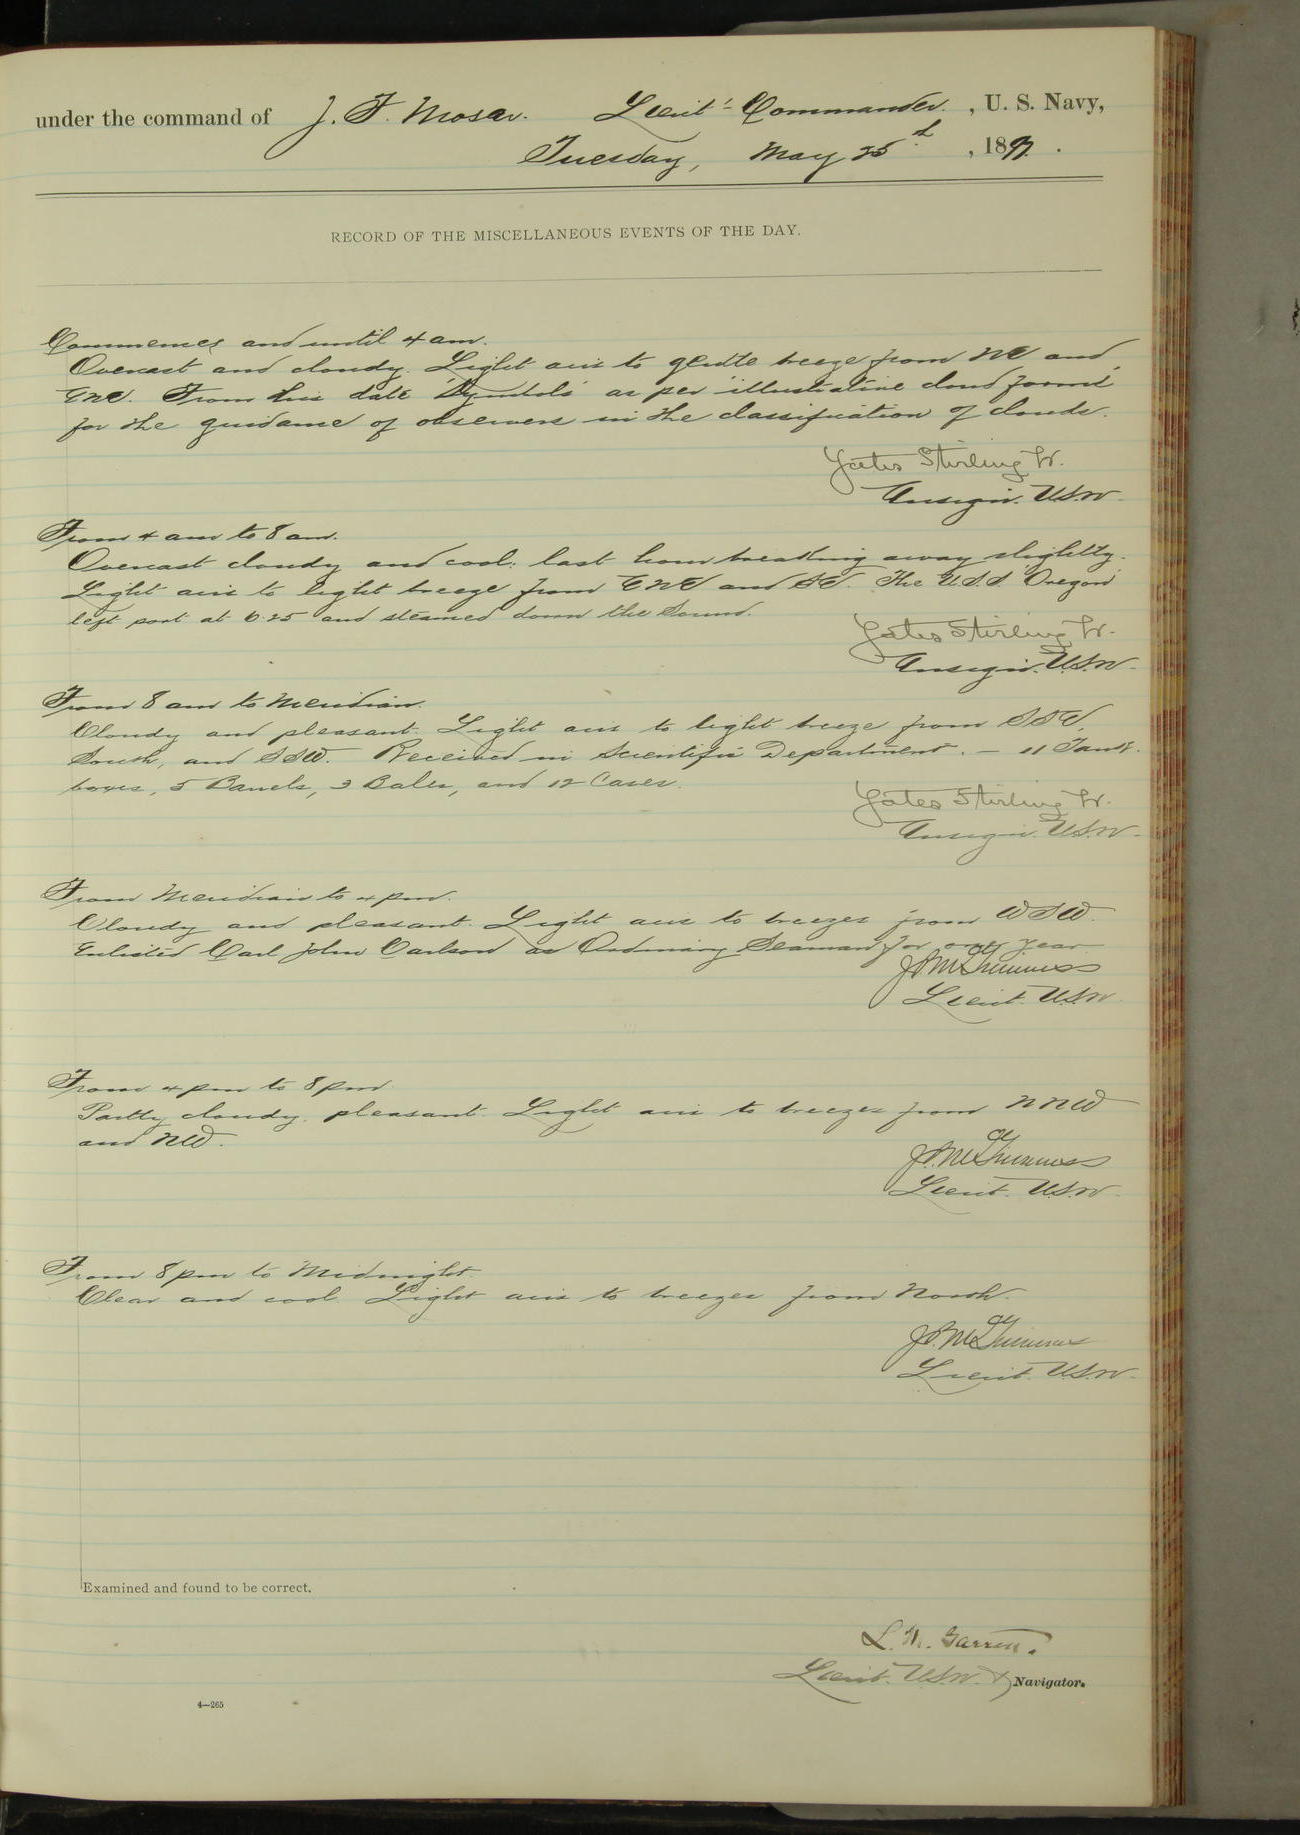 under the command of J. F. Moser. Lieut. Commander. , U. S. Navy,
Tuesday, May 25th , 1897.
RECORD OF THE MISCELLANEOUS EVENTS OF THE DAY.
Commences and until 4 am.
Overcast and cloudy. Light airs to gentle breeze from NE and
ENE. From this date "Symbols" as per "illustrative cloud forms"
for the guidance of observers in the classification of clouds.
Yates Stirling Jr.
Ensign. U.S.N.
From 4 am to 8 am.
Overcast cloudy and cool: last hour breaking away slightly.
Light airs to light breeze from ENE and SE. The U.S.S. Oregon
left port at 6.25 and steamed down the Sound.
Yates Stirling Jr.
Ensign. U.S.N.
From 8 am to Meridian.
Cloudy and pleasant. Light airs to light breeze from SSE,
South, and SSW. Received in Scientific Department. — 11 Tank
boxes, 5 Barrels, 3 Bales, and 12 Cases.
Yates Stirling Jr.
Ensign. U.S.N.
From Meridian to 4 pm.
Cloudy and pleasant. Light airs to breezes from WSW.
Enlisted Carl John Carlson as Ordinary Seaman for one year
Lieut. U.S.N.
From 4 pm to 8 pm
Partly cloudy, pleasant. Light airs to breezes from NNW
and NW.
Lieut. U.S.N.
From 8 pm to Midnight.
Clear and cool. Light airs to breezes from North.
Lieut. U.S.N.
Examined and found to be correct.
L. M. Garrett.
Lieut. U.S.N. & Navigator.
4—265